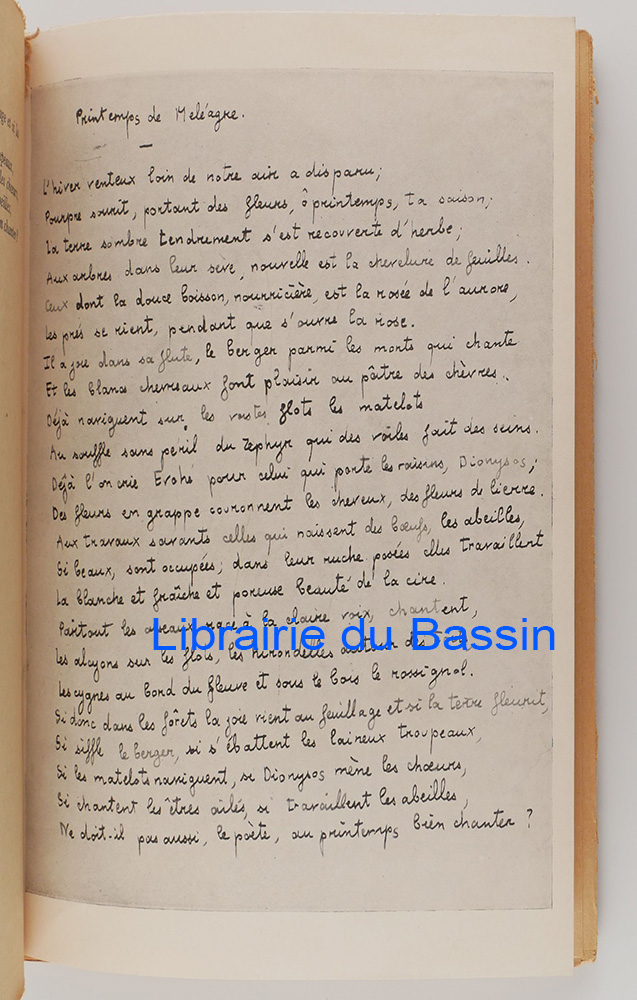 Printemps de Méléagre.
L'hiver venteux loin de notre air a disparu;
Pourpre sourit, portant des fleurs, ô printemps, ta saison;
La terre sombre tendrement s'est recouverte d'herbe;
Aux arbres dans leur sève, nouvelle est la chevelure de feuilles.
Ceux dont la douce boisson, nourricière, est la rosée de l'aurore,
Les prés se rient, pendant que s'ouvre la rose.
Il a joie dans sa flute, le berger parmi les monts qui chante
Et les blancs chevreaux font plaisir au pâtre des chèvres.
Déjà naviguent sur les vastes flots les matelots
Au souffle sans péril du Zéphyr qui des voiles fait des seins.
Déjà l'on crie Evohé pour celui qui porte les raisins, Dionysos;
Des fleurs en grappe couronnent les cheveux, des fleurs de lierre.
Aux travaux savants celles qui naissent des bœufs, les abeilles,
Si beaux, sont occupées; dans leur ruche posées elles travaillent
La blanche et fraîche et poreuse beauté de la cire.
Partout les oiseaux, race à la claire voix, chantent,
Les alcyons sur les flots, les hirondelles autour des
Les cygnes au bord du fleuve et sous le bois le rossignol.
Si donc dans les forêts la joie vient au feuillage et si la terre fleurit,
Si siffle le berger, si s'ébattent les laineux troupeaux,
Si les matelots naviguent, si Dionysos mène les chœurs,
Si chantent les êtres ailés, si travaillent les abeilles,
Ne doit-il pas aussi, le poète, au printemps bien chanter ?
Librairie du Bassin